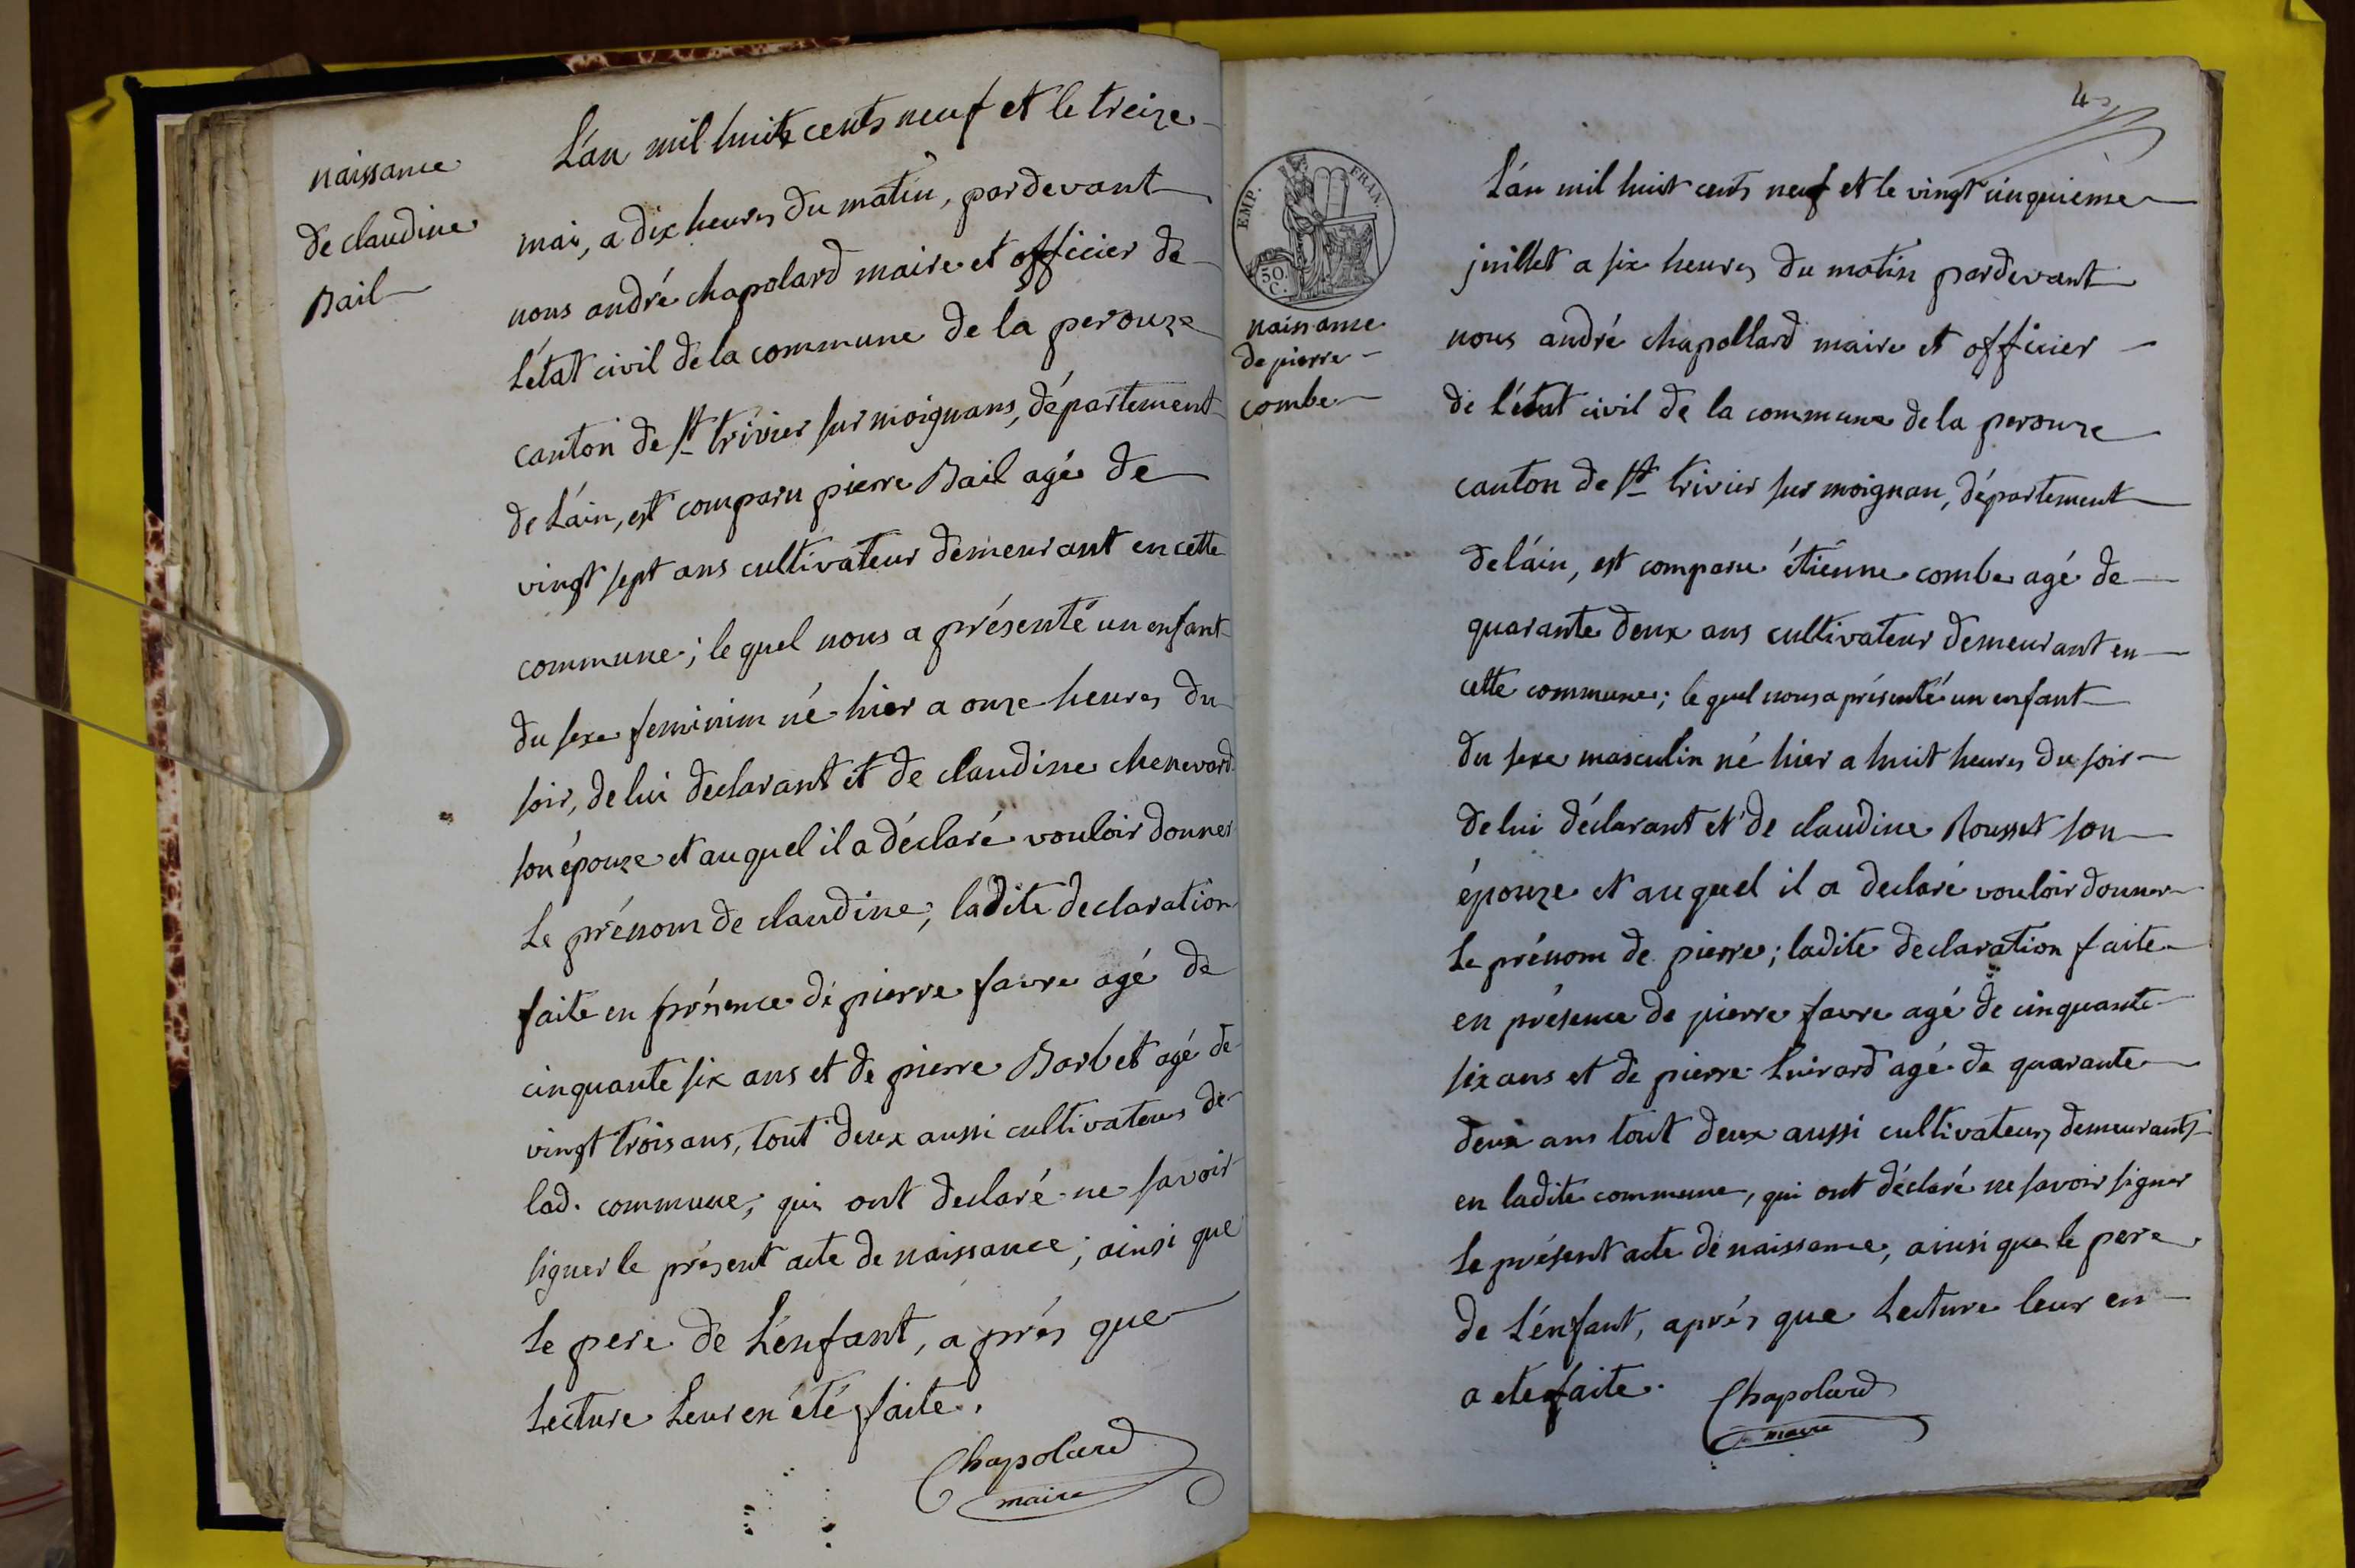 naissance
de claudine
Bail
L'an mil huit cents neuf et le treize
mai, a dix heures du matin, pardevant
nous andré chapolard maire et officier de
L'état civil de la commune de la perouze
canton de st trivier sur moignans, département
de L'ain, est comparu pierre Bail agé de
vingt sept ans cultivateur demeurant en cette
commune; le quel nous a présenté un enfant
du sexe feminim né hier a onze heures du
soir, de lui declarant et de claudine chenevard
son épouze et au quel il a déclaré vouloir donner
Le prénom de claudine; ladite declaration
faite en présence de pierre favre agé de
cinquante six ans et de pierre Barbet agé de
vingt trois ans, tout deux aussi cultivateurs de
lad. commune; qui ont declaré ne savoir
signer le présent acte de naissance; ainsi que
Le pere de L'enfant, aprés que
Lecture Leur en été faite.
Chapolard
maire
4
EMP. FRAN.
50 C.
naissance
de pierre
combe
L'an mil huit cents neuf et le vingt cinquieme
juillet a six heures du matin pardevant
nous andré chapollard maire et officier
de L'état civil de la commune de la perouze
canton de st trivier sur moignan, département
de l'ain, est comparu étienne combe agé de
quarante deux ans cultivateur demeurant en
cette commune; le quel nous a présenté un enfant
du sexe masculin né hier a huit heures du soir
de lui déclarant et de claudine Rousset son
épouze et au quel il a declaré vouloir donner
Le prénom de pierre; ladite declaration faite
en présence de pierre favre agé de cinquante
six ans et de pierre Luirard agé de quarante
deux ans tout deux aussi cultivateurs demeurants
en ladite commune, qui ont déclaré ne savoir signer
Le présent acte de naissance, ainsi que le pere
de L'énfant, aprés que Lecture leur en
a ete faite. Chapolard
maire